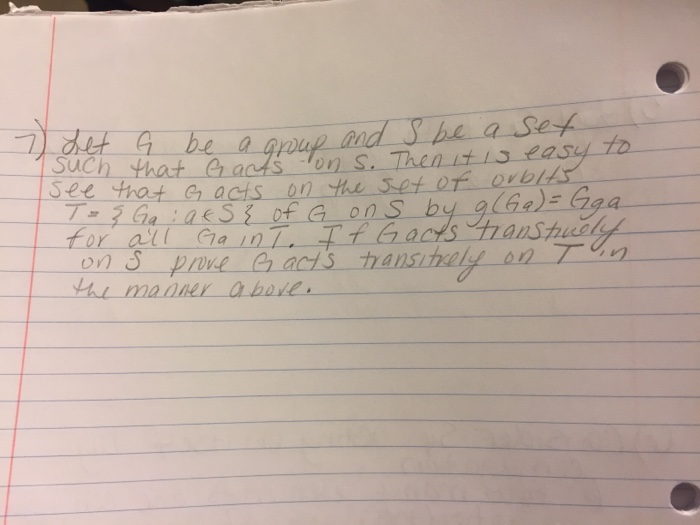 7) Let G be a group and S be a set
such that G acts on S. Then it is easy to
see that G acts on the set of orbits
T = { Ga : a ∈ S } of G on S by g(Ga) = Gga
for all Ga in T. If G acts transitively
on S prove G acts transitively on T in
the manner above.